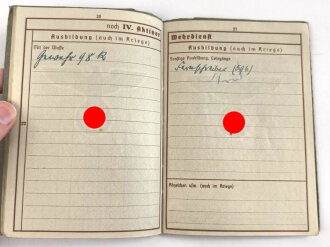 20
noch IV. Aktiver
Ausbildung (auch im Kriege)
Mit der Waffe
Gewehr 98 K
22
21
Wehrdienst
Ausbildung (auch im Kriege)
Sonstige Ausbildung, Lehrgänge
Fernschreiber
Abzeichen usw. (auch im Kriege)